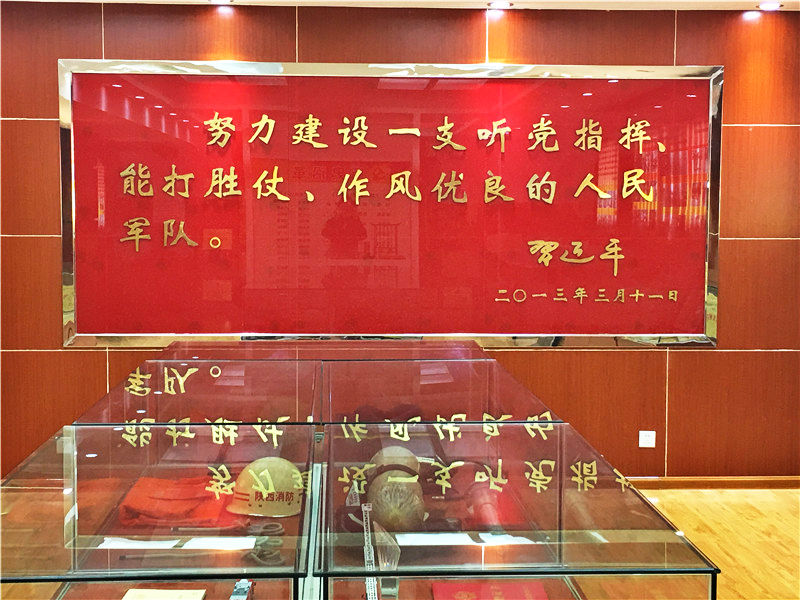 努力建设一支听党指挥、
能打胜仗、作风优良的人民
军队。
习近平
二〇一三年三月十一日
陕西消防